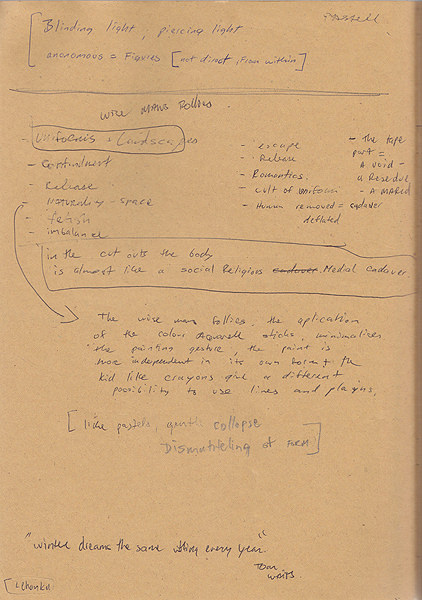 Blinding light, piercing light
anonomous = Figures [not direct, from within]
wise mans Follies.
- Uniforms + Landscapes
- Confinment
- Release
- Naturality - space
- fetish
- imbalance
- escape
- Release
- Romantics.
- cult of uniform
- Human removed = cadaver
deflated
- The tape
part =
a void -
a Residue
- A MARED
in the cut outs the body
is almost like a social Religious cadaver. Medial cadaver.
The wise mans follies, the aplication
of the colour Aquarell sticks, minimalises
the painting gesture, the paint is
more independent in its own form + the
kid like crayons give a different
possibility to use lines and plains,
[like pastels, gentle collapse
Dismantteling of FORM]
"winter dreams the same thing every year."
Tom
Waits